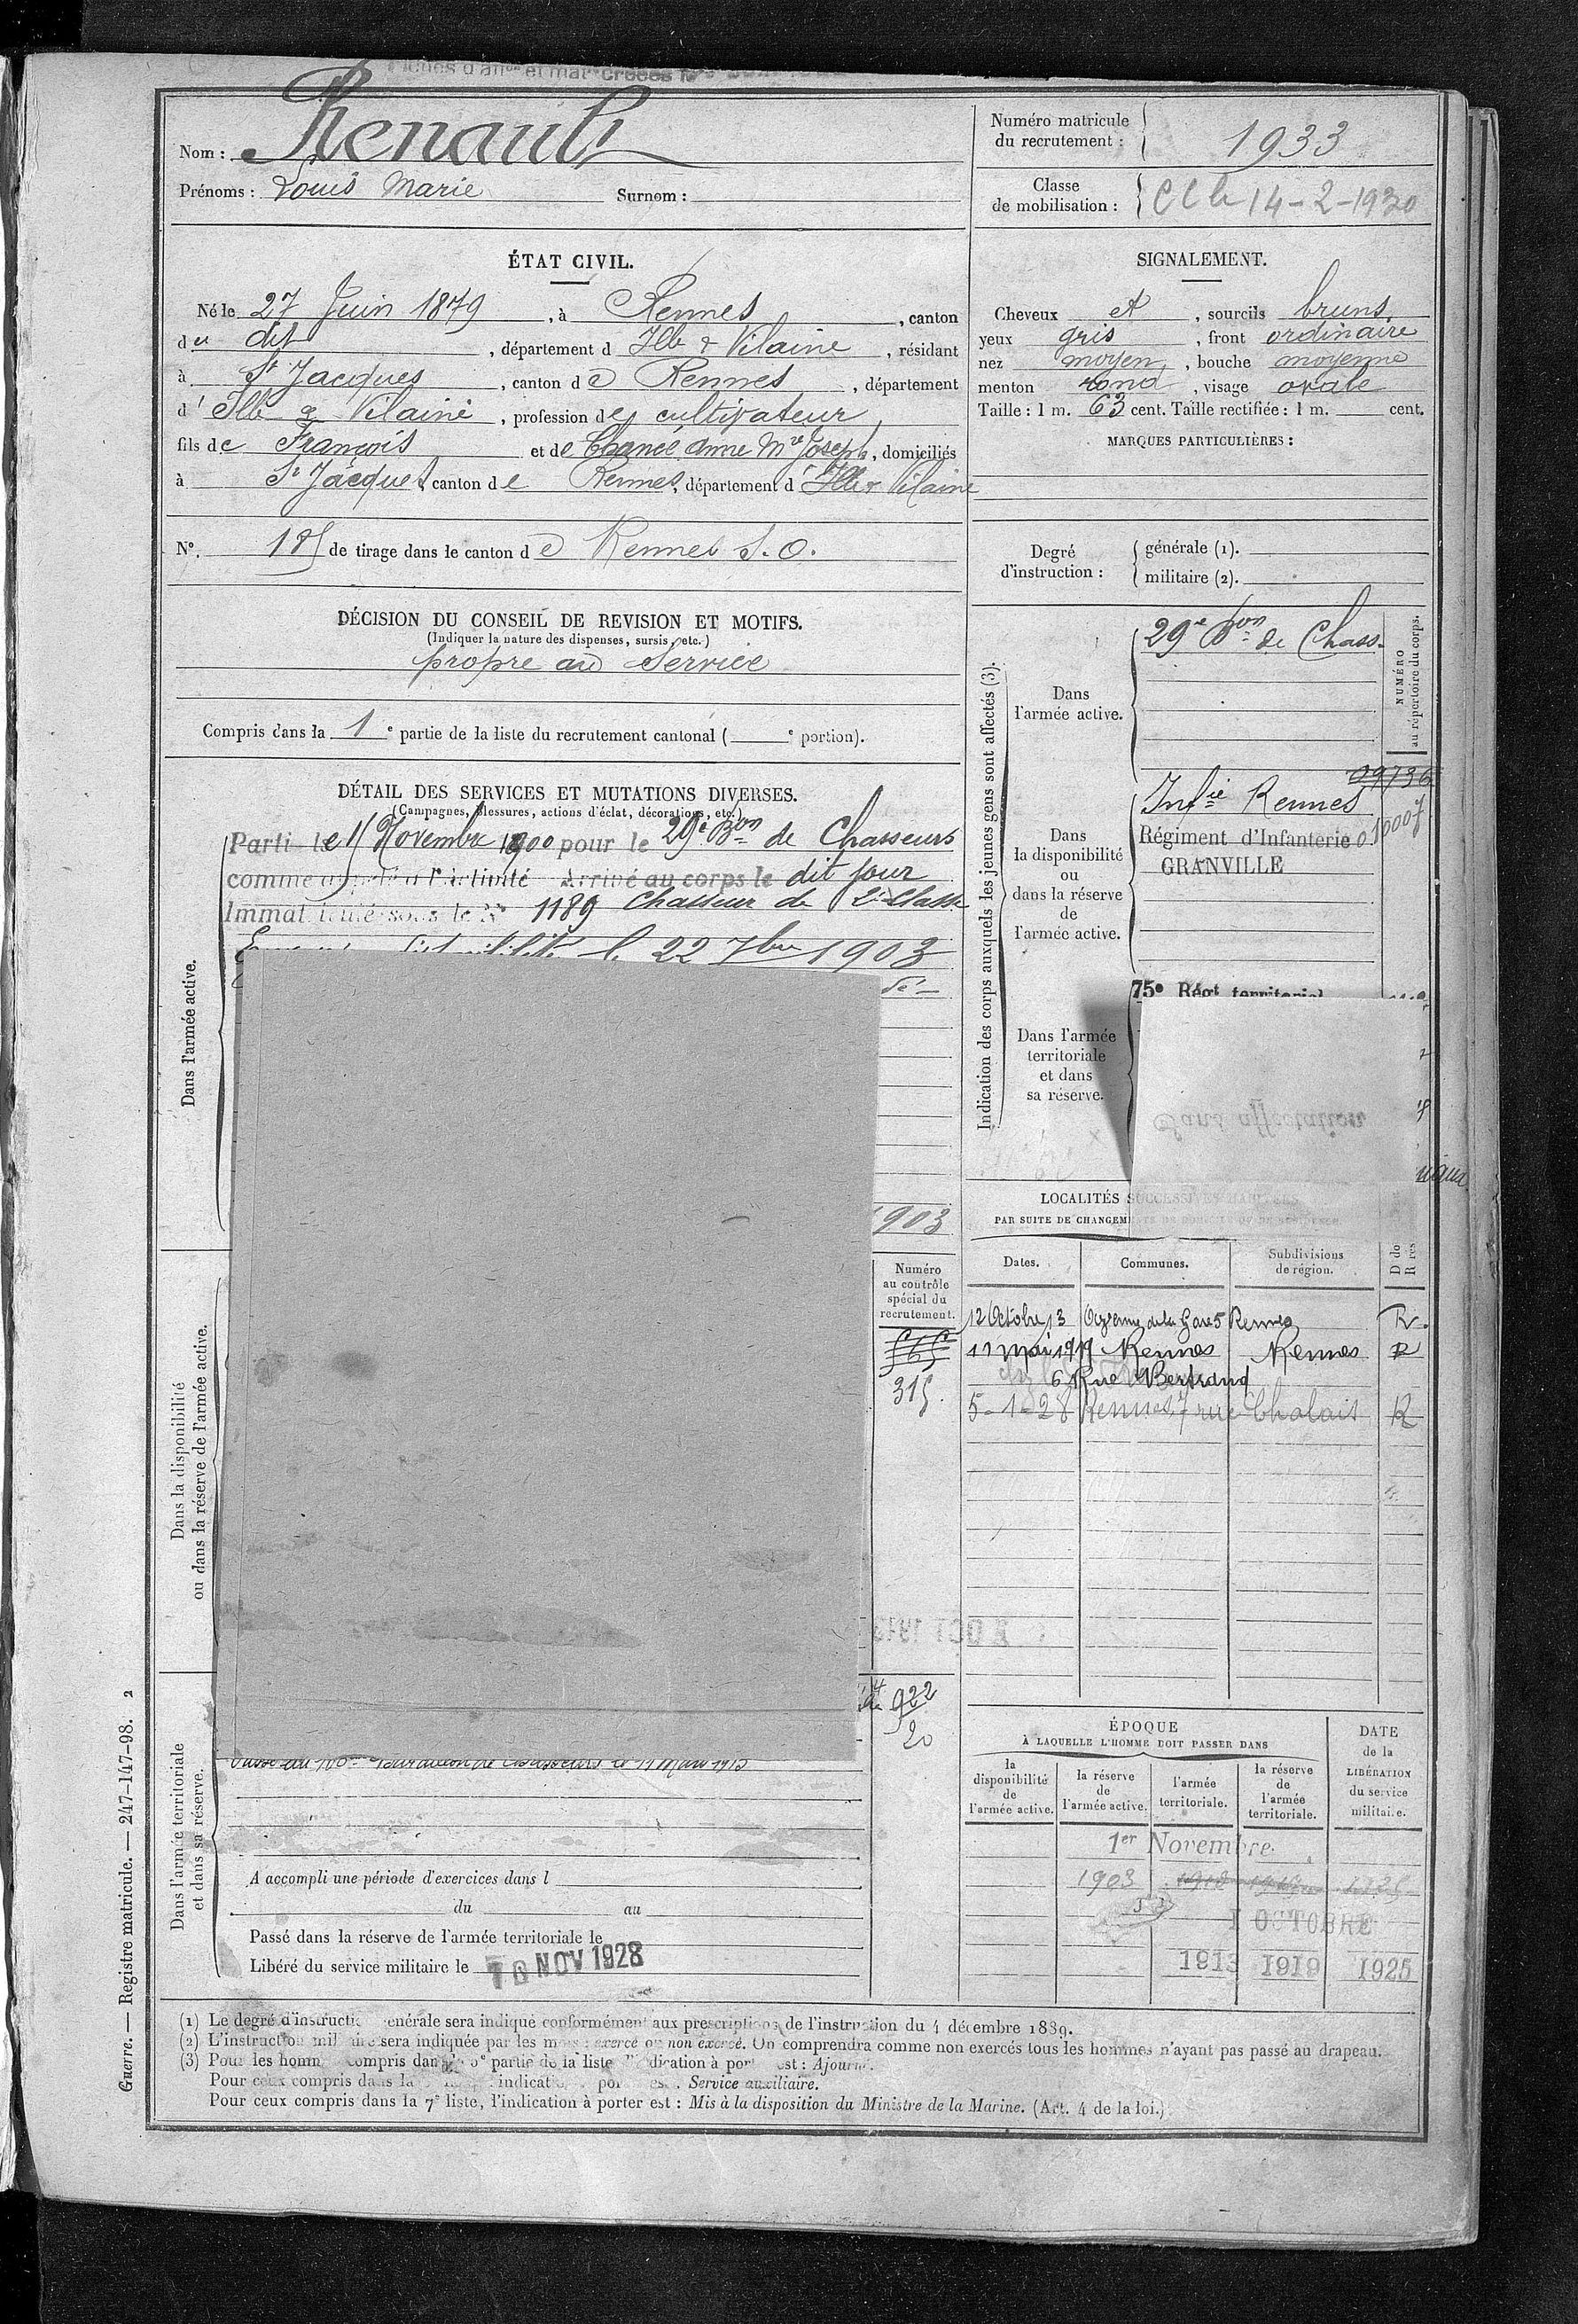 Nom : Renault
Prénoms : Louis Marie Surnom :
Numéro matricule du recrutement : 1933
Classe de mobilisation : 14-2-1930
ÉTAT CIVIL.
Né le 27 Juin 1879, à Rennes, canton
du dit, département d Ille & Vilaine, résidant
à St Jacques, canton de Rennes, département
d'Ille & Vilaine, profession de cultivateur
fils de François et de Chancé Anne Mie Joseph, domiciliés
à St Jacques, canton de Rennes, département d'Ille & Vilaine
No. 185 de tirage dans le canton de Rennes S. O.
DÉCISION DU CONSEIL DE REVISION ET MOTIFS.
(Indiquer la nature des dispenses, sursis, etc.)
propre au service
Compris dans la 1e partie de la liste du recrutement cantonal ( e portion).
DÉTAIL DES SERVICES ET MUTATIONS DIVERSES.
(Campagnes, blessures, actions d'éclat, décorations, etc.)
Parti le 15 Novembre 1900 pour le 29e Bon de Chasseurs
comme appelé à l'activité Arrivé au corps le dit jour
Immatriculé sous le No 1189 Chasseur de 2e classe
le 22 7bre 1903
1903
Dans l'armée active.
Dans la disponibilité
ou dans la réserve de l'armée active.
Numéro
au contrôle
spécial du
recrutement.
565
315.
922
20
Dans l'armée territoriale
et dans sa réserve.
Passé au Bataillon de Chasseurs le 11 Mars 1915
A accompli une période d'exercices dans l
du au
Passé dans la réserve de l'armée territoriale le
Libéré du service militaire le 10 NOV 1928
SIGNALEMENT.
Cheveux et, sourcils bruns
yeux gris, front ordinaire
nez moyen, bouche moyenne
menton rond, visage ovale
Taille : 1 m. 63 cent. Taille rectifiée : 1 m. cent.
MARQUES PARTICULIÈRES :
Degré d'instruction :
générale (1).
militaire (2).
Indication des corps auxquels les jeunes gens sont affectés (3).
NUMÉRO
au répertoire du corps.
Dans
l'armée active.
29e Bon de Chass.
Dans
la disponibilité
ou
dans la réserve
de
l'armée active.
09736
Infie Rennes
Régiment d'Infanterie
GRANVILLE
Dans l'armée
territoriale
et dans
sa réserve.
75e Régt territorial
Sans affectation
LOCALITÉS SUCCESSIVES HABITÉES
PAR SUITE DE CHANGEMENTS DE DOMICILE OU DE RÉSIDENCE.
Dates. Communes. Subdivisions de région. D do R res
12 Octobre 13 Avenue de la Gare 5 Rennes R.
11 mai 1919 Rennes Rennes R
6 Rue Bertrand
5-1-28 Rennes, 7 rue Chalais R
ÉPOQUE
À LAQUELLE L'HOMME DOIT PASSER DANS
DATE
de la
LIBÉRATION
du service
militaire.
la disponibilité de l'armée active.
la réserve de l'armée active.
l'armée territoriale.
la réserve de l'armée territoriale.
1er Novembre
1903
1 OCTOBRE
1913 1919 1925
Guerre. — Registre matricule. — 247-147-98. 2
(1) Le degré d'instruction générale sera indiqué conformément aux prescriptions de l'instruction du 4 décembre 1889.
(2) L'instruction militaire sera indiquée par les mots : exercé ou non exercé. On comprendra comme non exercés tous les hommes n'ayant pas passé au drapeau.
(3) Pour les hommes compris dans la 6e partie de la liste, l'indication à porter est : Ajourné.
Pour ceux compris dans la indication à porter est : Service auxiliaire.
Pour ceux compris dans la 7e liste, l'indication à porter est : Mis à la disposition du Ministre de la Marine. (Art. 4 de la loi.)